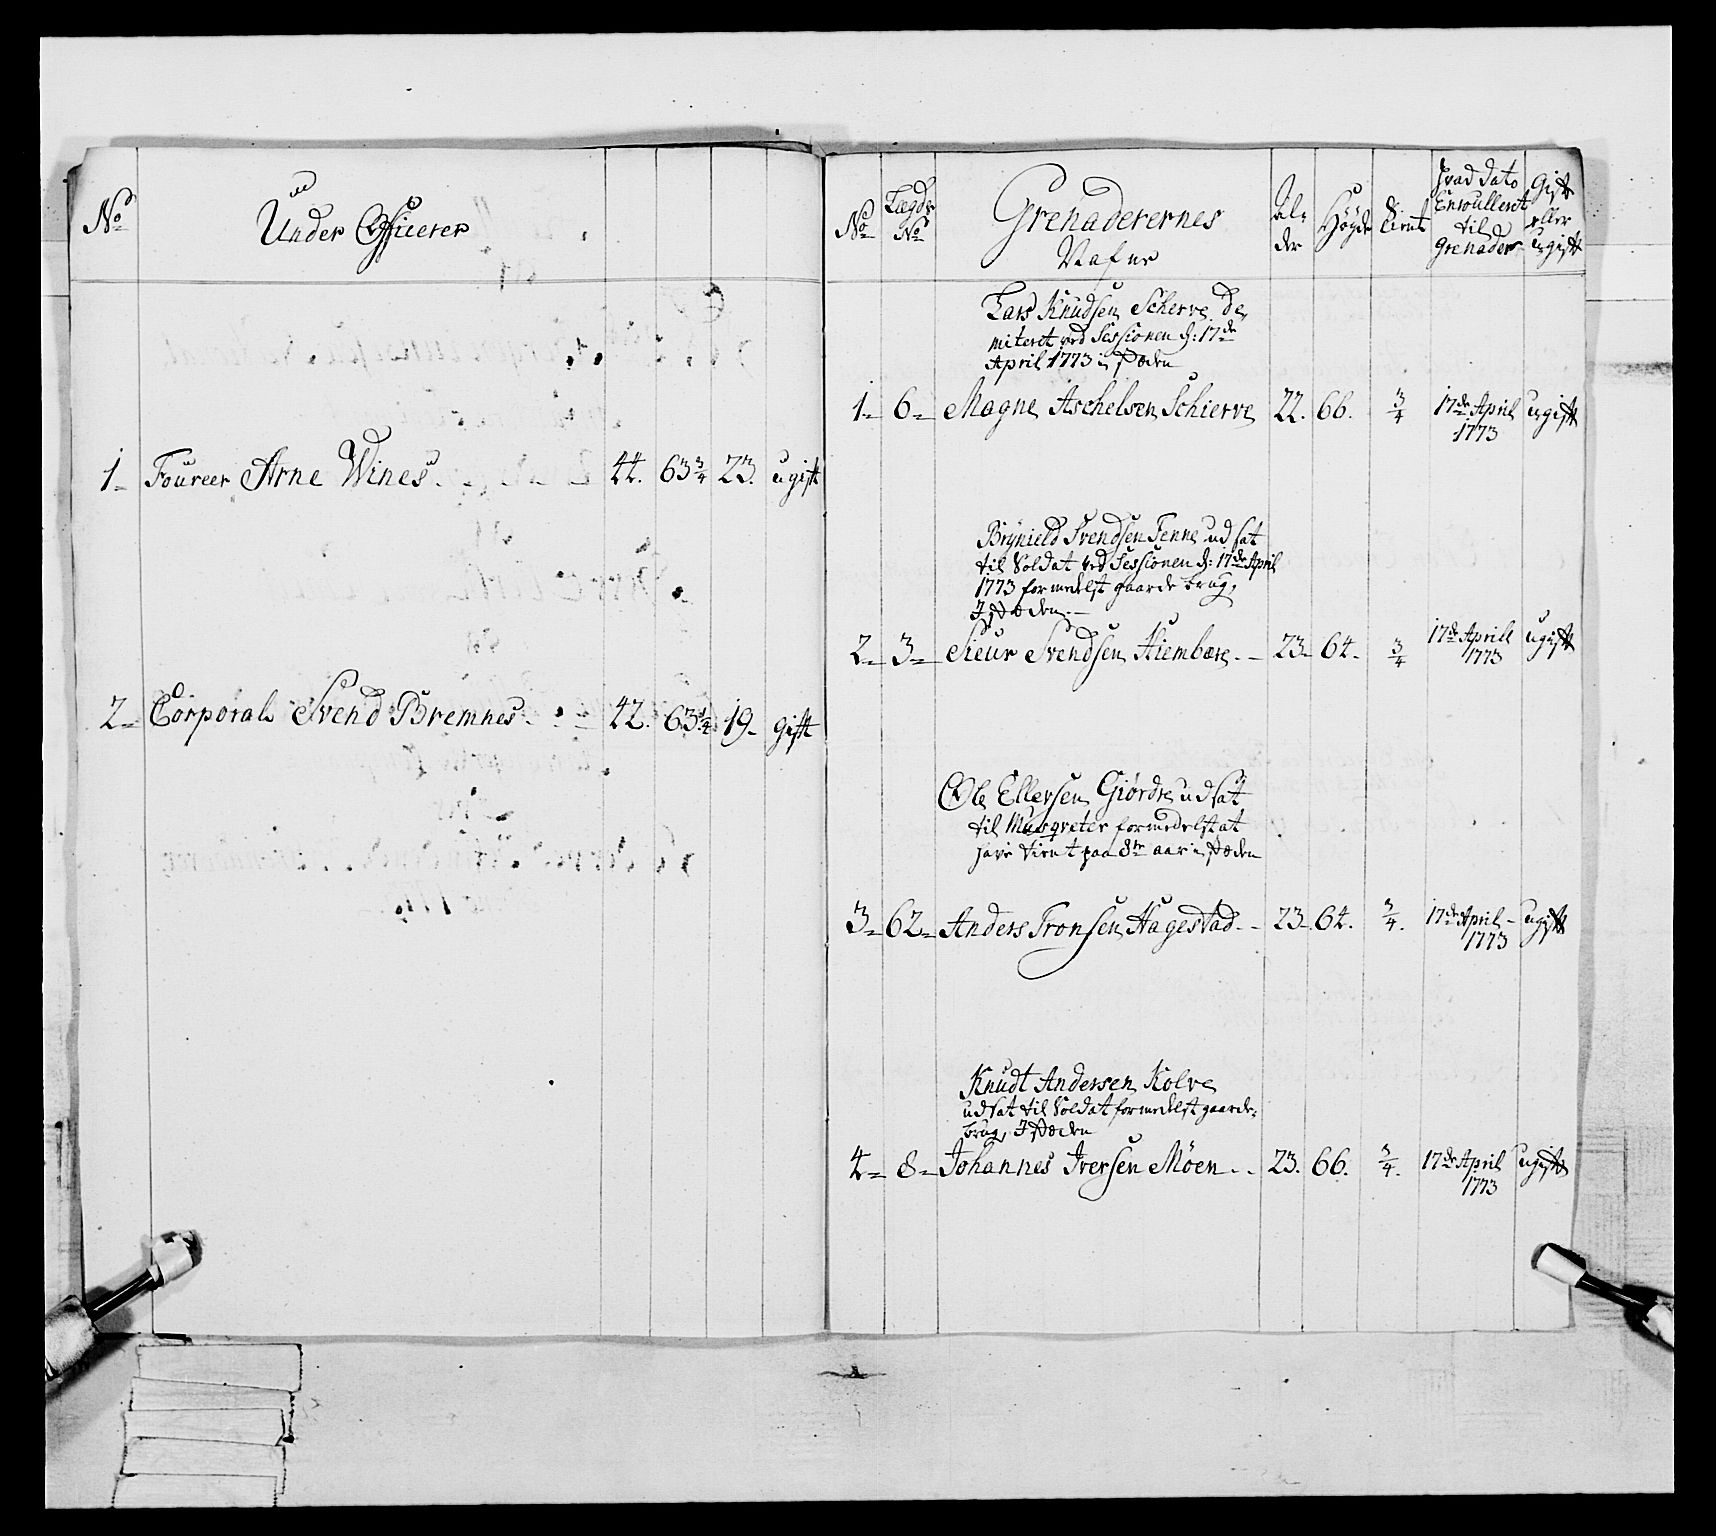 No
Under Officerer
1 Foureer Arne Wines. 44. 63 3/4 23. ugift
2 Corporal Svend Bremnes 42. 63 1/4 19 gift
No
Lægds No
Grenaderernes Nafne
Alder
Høyde
tient
hvad dato Enroulleret til Grenader
Gift eller ugift
Lars Knudsen Scherve de
miteret ved Sessionen d: 17de
April 1773 i Stæden
1 6 Magne Aschelsen Schierve 22. 66. 3/4 17de April 1773 ugift
Brynield Svendsen Fenne udsat
til Soldat ved Sessionen d: 17de April
1773 formedelst gaarde brug,
I Stæden
2 3 Sieur Svendsen Hiembære 23 64. 3/4 17de Aprill 1773 ugift
Ole Ellevsen Giørdre udsat
til Musqveter formedelst at
have tient paa 8te aar i Stæden
3 62 Anders Tronsen Hagestad 23 64. 3/4. 17de April 1773 ugift
Knudt Andersen Kolve
udsat til Soldat formedelst gaarde
brug, I Stæden
4 8 Johannes Iversen Möen 23. 66. 3/4. 17de April 1773 ugift